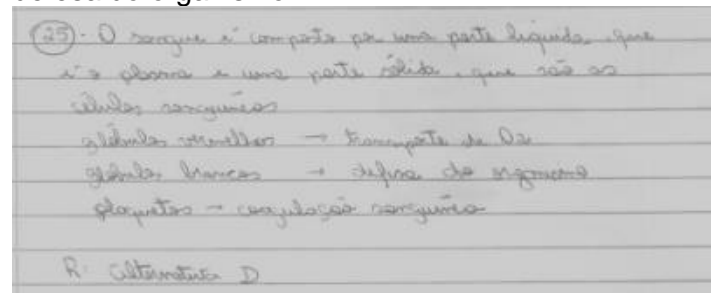 (25). O sangue é composto por uma parte líquida, que
é o plasma e uma parte sólida, que são as
células sanguíneas
glóbulos vermelhos → transporte de O2
glóbulos brancos → defesa do organismo
plaquetas → coagulação sanguínea
R: alternativa D